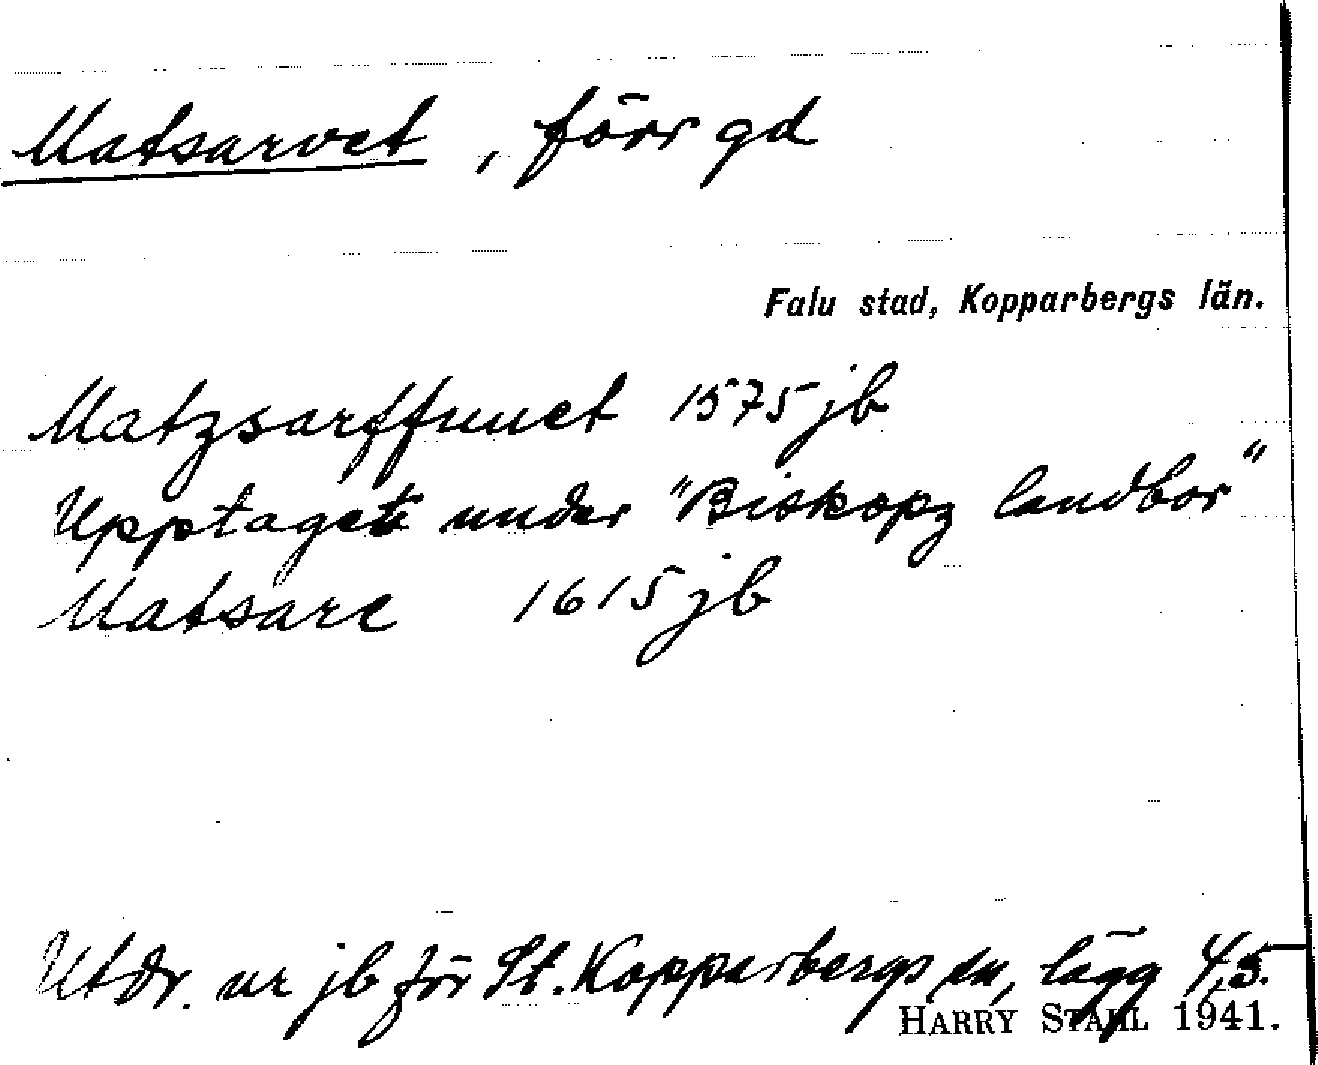 Matsarvet, förr gd
Falu stad, Kopparbergs län.
Matzsarffuuet 1575 jb
Upptaget under "Biskopz landbor"
Matsare 1615 jb
Utdr. ur jb för St. Kopparbergs sn, lägg 4,5.
HARRY STÅHL 1941.